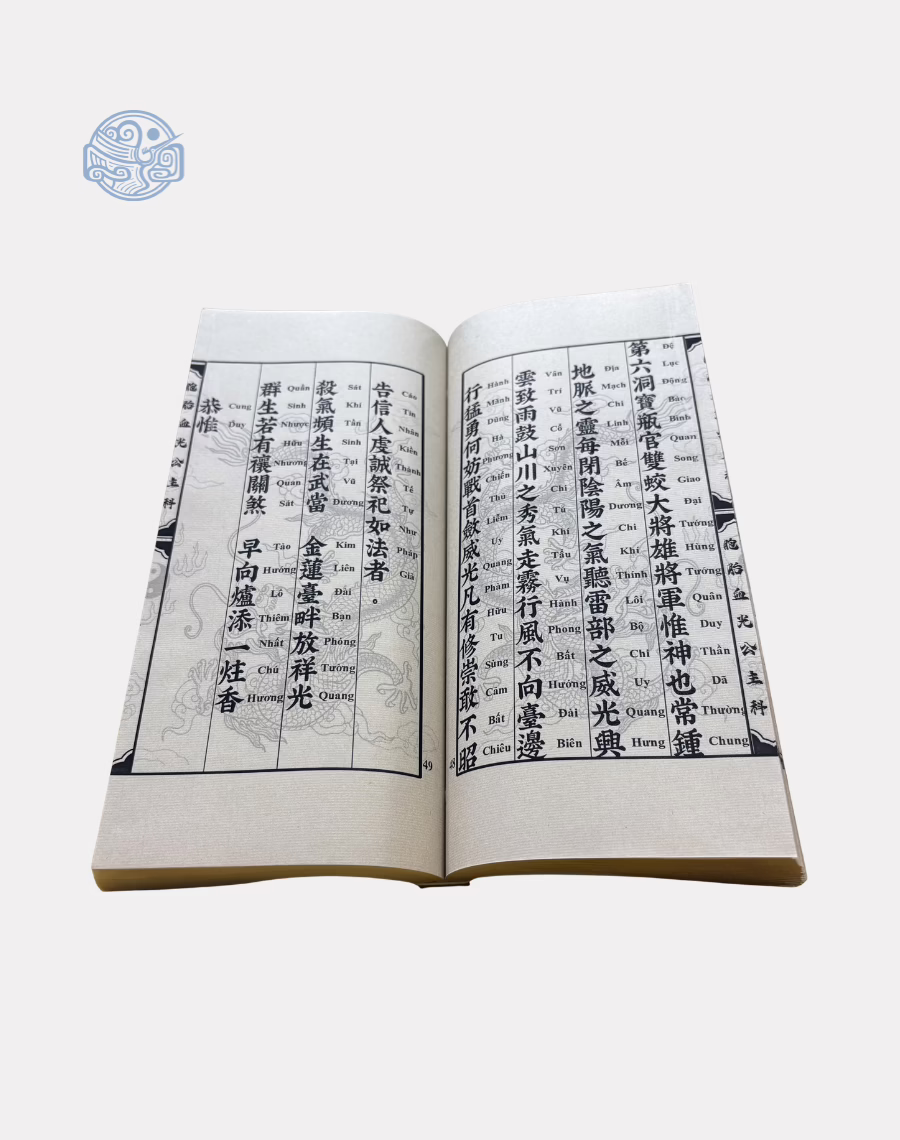 胎血光公主科
第六洞寶瓶官雙蛟大將雄將軍惟神也常鍾
Đệ Lục Động Bảo Bình Quan Song Giao Đại Tướng Hùng Tướng Quân Duy Thần Dã Thường Chung
地脈之靈每閉陰陽之氣聽雷部之威光興
Địa Mạch Chi Linh Mỗi Bế Âm Dương Chi Khí Thính Lôi Bộ Chi Uy Quang Hưng
雲致雨鼓山川之秀氣走霧行風不向臺邊
Vân Trí Vũ Cổ Sơn Xuyên Chi Tú Khí Tẩu Vụ Hành Phong Bất Hướng Đài Biên
行猛勇何妨戰首斂威光凡有修崇敢不昭
Hành Mãnh Dũng Hà Phương Chiến Thủ Liễm Uy Quang Phàm Hữu Tu Sùng Cảm Bất Chiêu
48
告信人虔誠祭祀如法者。
Cáo Tín Nhân Kiền Thành Tế Tự Như Pháp Giả
殺氣頻生在武當 金蓮臺畔放祥光
Sát Khí Tần Sinh Tại Vũ Đương Kim Liên Đài Bạn Phóng Tường Quang
群生若有禳關煞 早向爐添一炷香
Quần Sinh Nhược Hữu Nhương Quan Sát Tảo Hướng Lô Thiêm Nhất Chú Hương
恭惟
Cung Duy
胎血光公主科
49